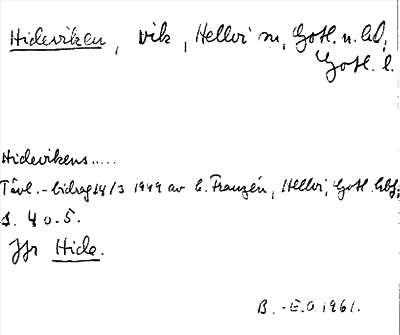 Hideviken, vik, Hellvi sn, Gotl. n. hd,
Gotl. l.
Hidevikens.....
Tävl.-bidrag 14/3 1949 av C. Franzén, Hellvi, Gotl.
s. 4 o. 5.
Jfr Hide.
B.-E.O 1961.